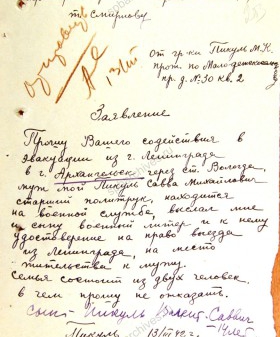 т. Смирнову
От гр-ки Пикуль М.К.
кв. 2
Заявление
Прошу Вашего содействия в
эвакуации из г. Ленинграда
в г. Архангельск через ст. Вологда,
муж мой Пикуль Савва Михайлович
старший политрук, находится
на военной службе, выслал мне
и сыну военный литер и к нему
удостоверение на право выезда
из Ленинграда, на место
жительства к мужу.
Семья состоит из двух человек,
в чем прошу не отказать.
Сын: Пикуль Валент. Саввич
14 лет
Пикуль 13/VII 42 г.